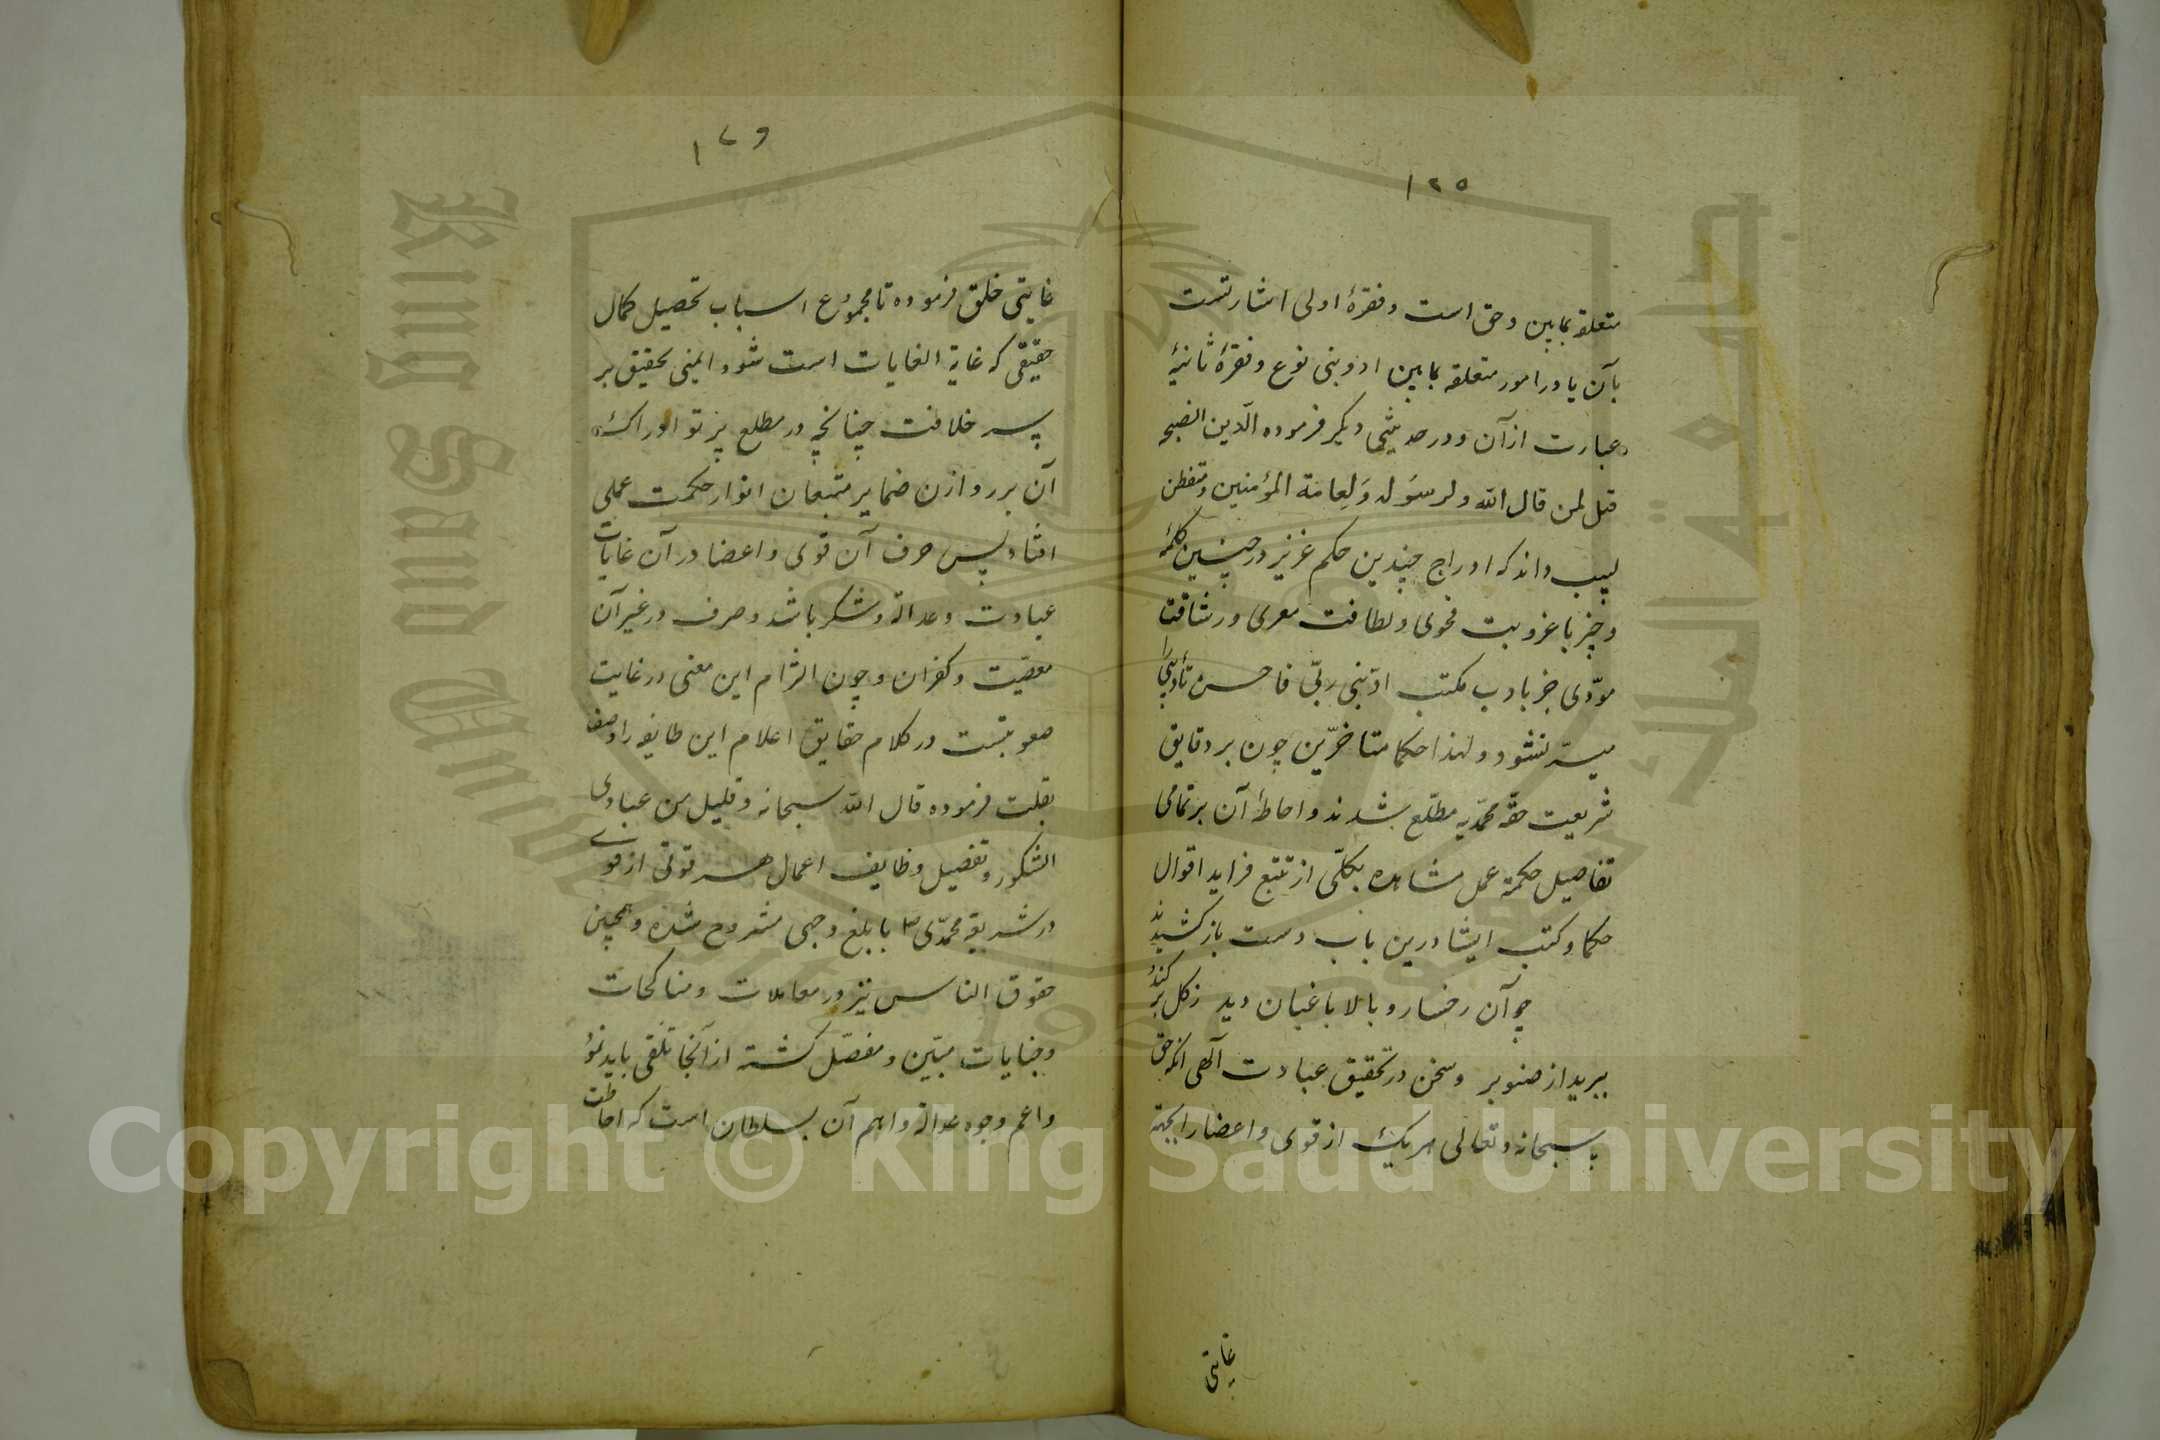 ١٢٥
متعلقه بمابین و حق است و فقرهٔ اولی اشارتست
بآن یا در امور متعلقه بمابین او و بنی نوع و فقرهٔ ثانیهٔ
عبارت از آن و در حدیثی دیگر فرموده الدّین النصیحه
قیل لمن قال الله و لرسوله و لعامة المؤمنین و متفطن
لبیب داند که ادراج چندین حکم عزیز در چنین کلمهٔ
وجیز با عزوبت فحوی و لطافت معری و رشاقت
مودّی جز بادب مکتب ادّبنی ربّی فاحسن تأدیبی را
میسّر نشود و لهذا حکما متاخرّین چون بر دقایق
شریعت حقه محمّدیه مطلع شدند و احاطهٔ آن بر تمامی
تفاصیل حکمة عمل مشاهده بکلّی از تتبع فراید اقوال
حکما و کتب ایشا درین باب دست باز کشیدند
چو آن رخسار و بالا باغبان دید ز کل بر کند
ببرید از صنوبر و سخن در تحقیق عبادت آلهی انکه حق
سبحانه و تعالی هر یک از قوی و اعضا را بجهة
غایتی
١٢٦
غایتی خلق فرموده تا مجموع اسباب تحصیل کمال
حقیقی که غایة الغایات است شود اینی تحقیق بر
سر خلافت چنانچه در مطلع پرتو ادراک
آن بر روازن ضمایر متتبعان انوار حکمت عملی
افتاد پس صرف آن قوی و اعضا در آن غایات
عبادت و عدالة و شکر باشد و صرف در غیر آن
معصیت و کفران و چون التزام این معنی در غایت
صعوبتست در کلام حقایق اعلام این طایفه را وصف
بقلت فرموده قال الله سبحانه و قلیل من عبادی
الشکور و تفصیل وظایف اعمال هر قوتی از قوی
در شریعة محمّدی ص بابلغ وجهی مشروح شده و همچنین
حقوق الناس نیز در معاملات و مناکحات
و جنایات مبیّن و مفصّل کشته از آنجا تلقی باید نمود
و اعم وجوه عدالة و اهم آن سلطان است که احاطت
Copyright © King Saud University
King Saud University
جامعة الملك سعود
1957